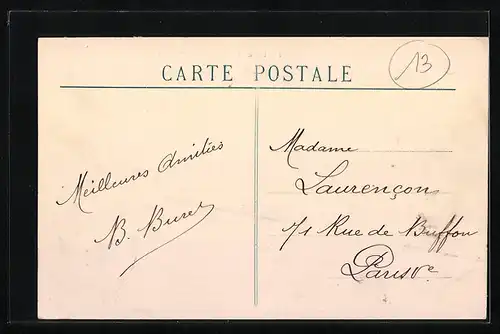 CARTE POSTALE
13
Meilleures Amitiés
B. Buret
Madame
Laurençon
71 Rue de Buffon
Paris Ve